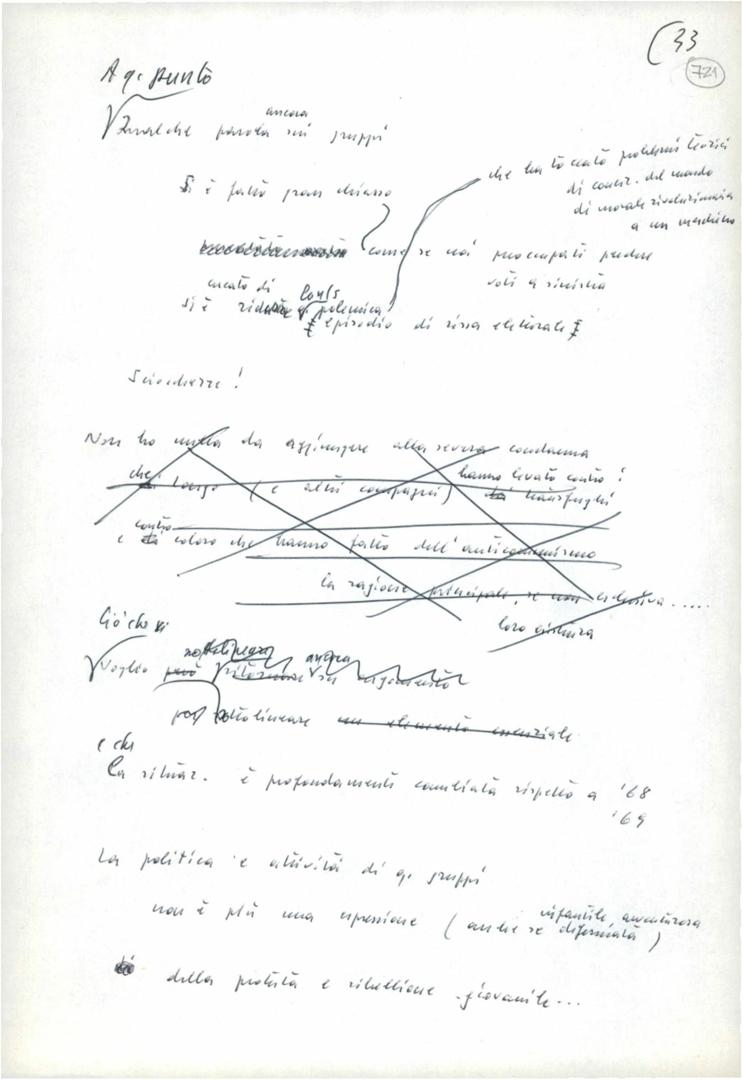 (33
721
A q. punto
ancora
Qualche parola sui gruppi
Si è fatto gran chiasso
che ha toccato problemi teorici
di concez. del mondo
di morale rivoluzionaria
a un meschino
come se noi preoccupati perdere
voti a sinistra
cercato di
Si è q. polemica
episodio di rissa elettorale
Sciocchezze!
Non ho nulla da aggiungere alla severa condanna
che Longo (e altri compagni) hanno levato contro i
transfughi
e contro coloro che hanno fatto dell'anticomunismo
la ragione principale, se non esclusiva.....
loro esistenza
Ciò che si
sottolineare ancora
Voglio però ritornare su argomento
per sottolineare un elemento essenziale
e che
la situaz. è profondamente cambiata rispetto a '68
'69
La politica e attività di q. gruppi
non è più una espressione (anche se infantile, avventurosa
deformata)
della protesta e ribellione giovanile...